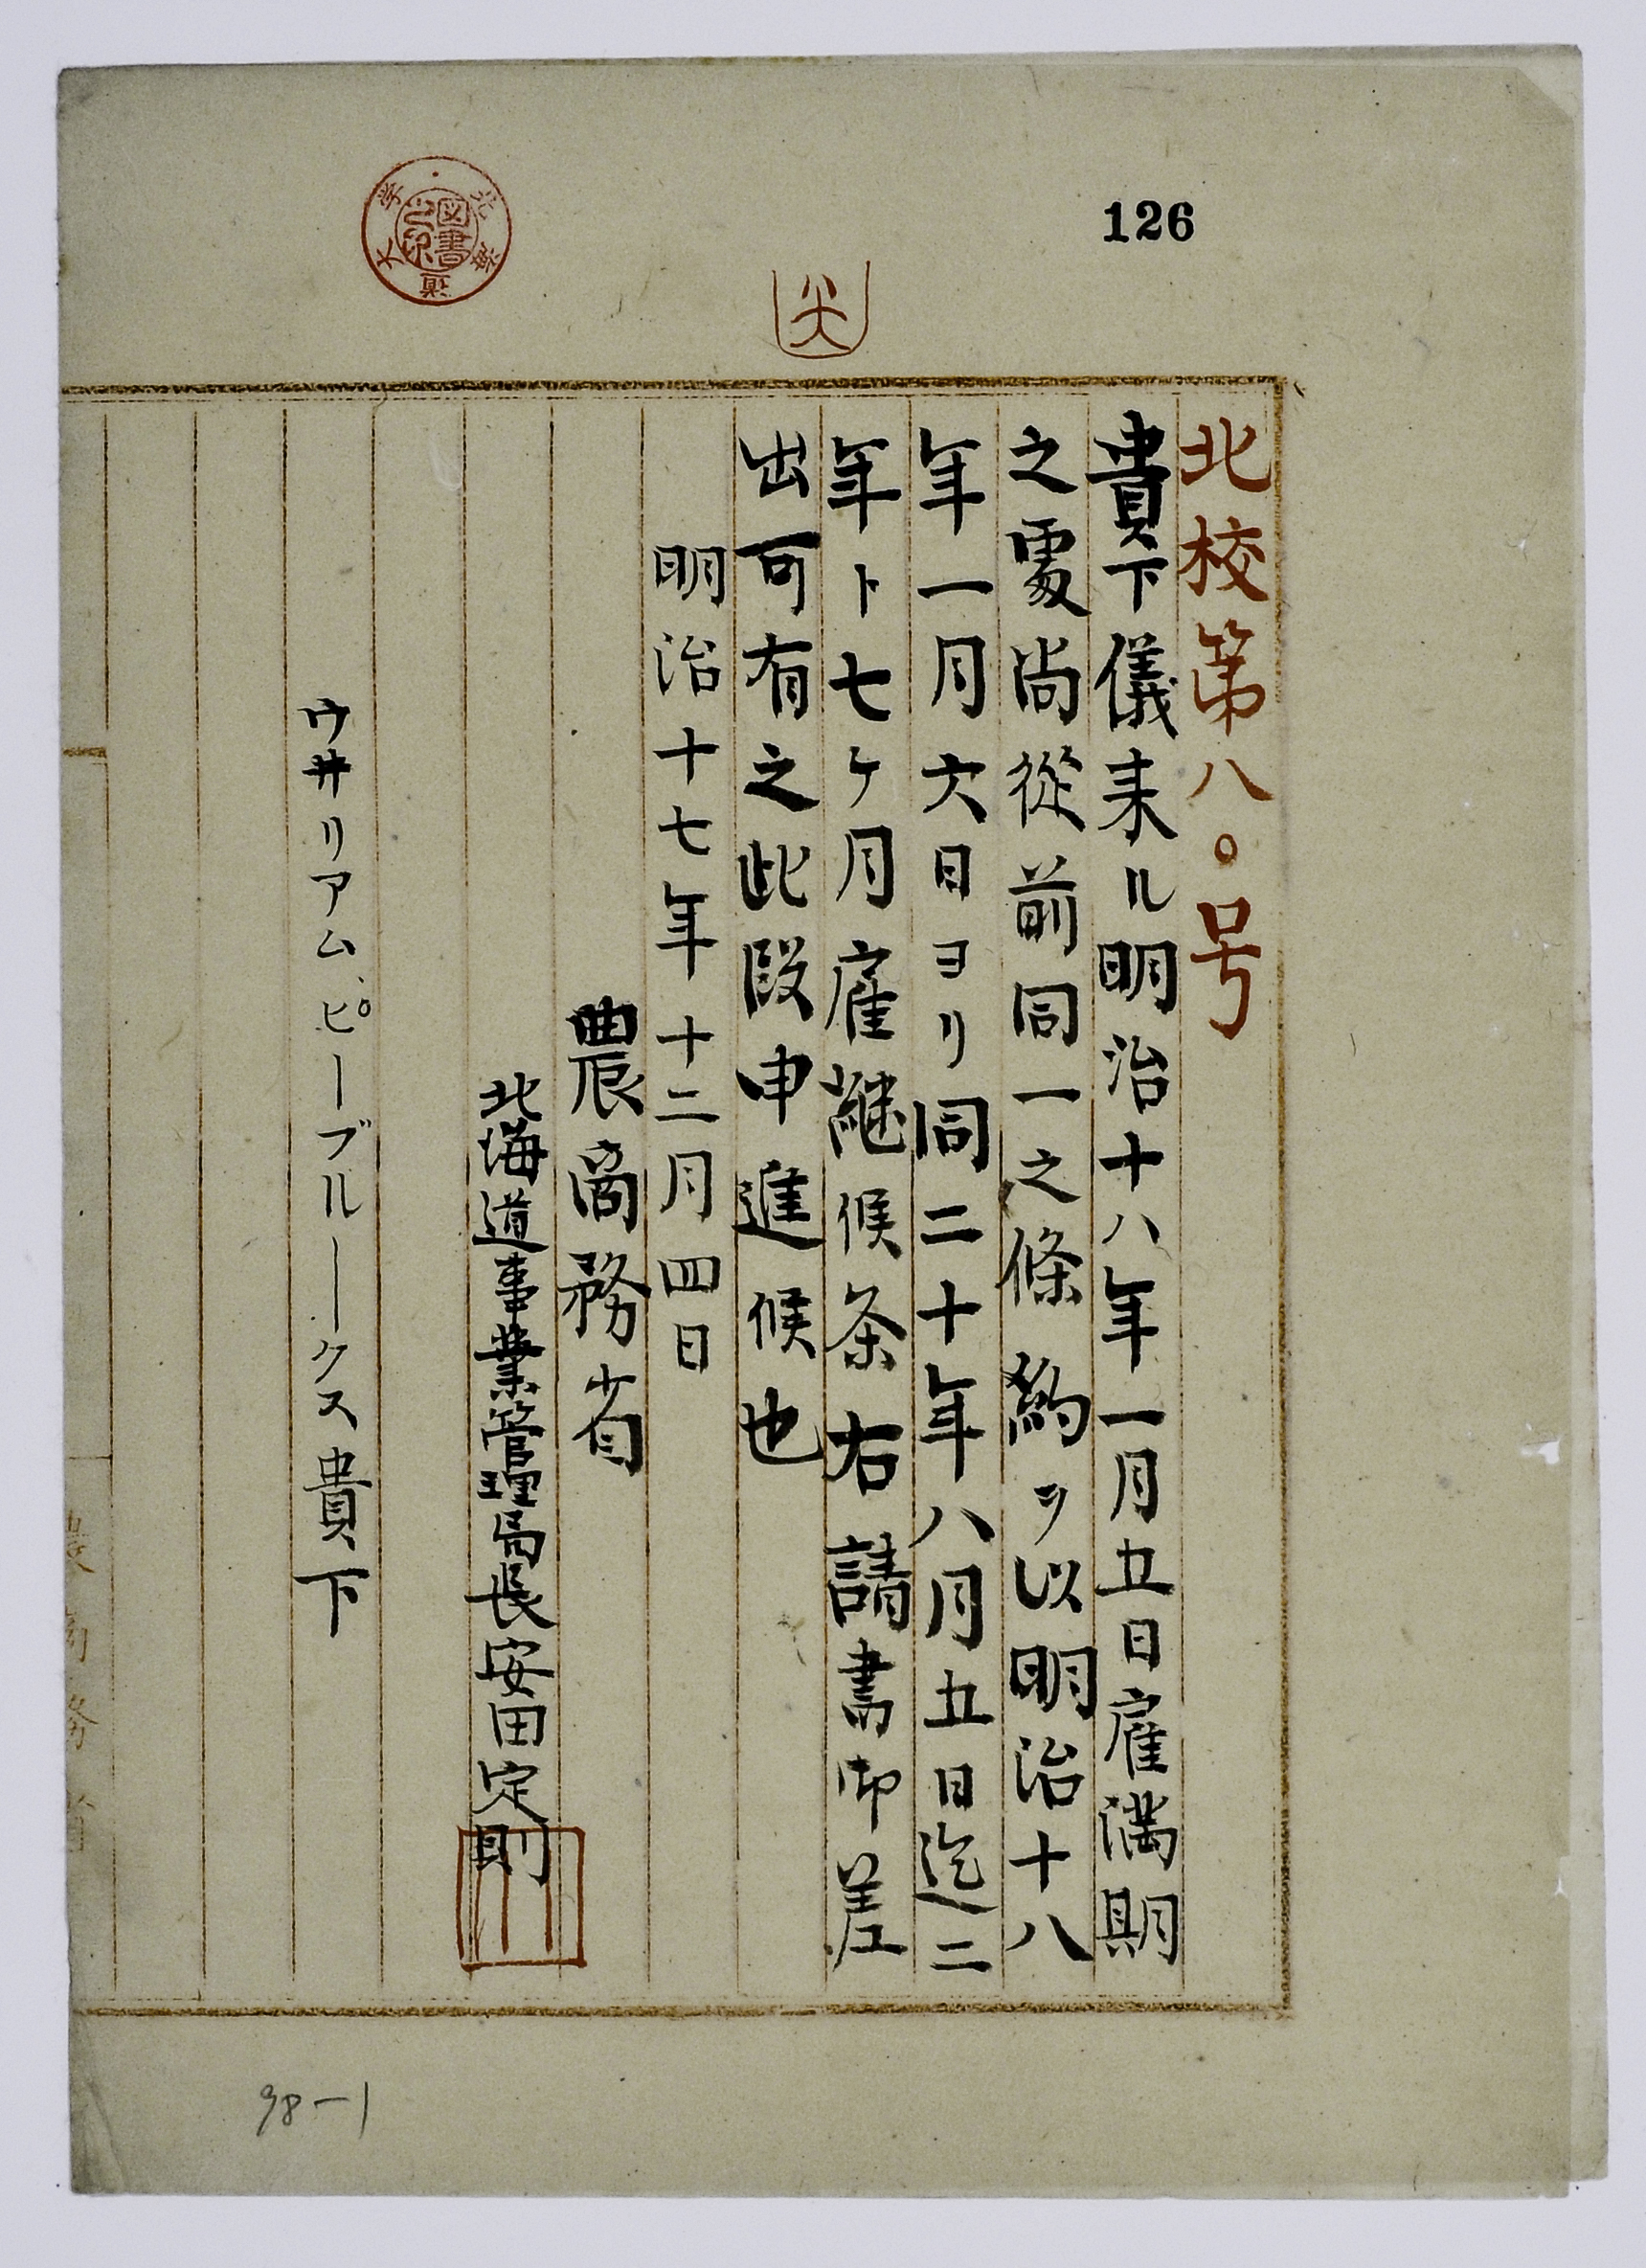 126
北海道大学
図書之印
北校第八〇号
貴下儀来ル明治十八年一月五日雇満期
之處尚從前同一之條約ヲ以明治十八
年一月六日ヨリ同二十年八月五日迄二
年ト七ケ月雇継候条右請書御差
出可有之此段申進候也
明治十七年十二月四日
農商務省
北海道事業管理局長安田定則
ウ井リアム、ピーブルークス貴下
農商務省
98-1